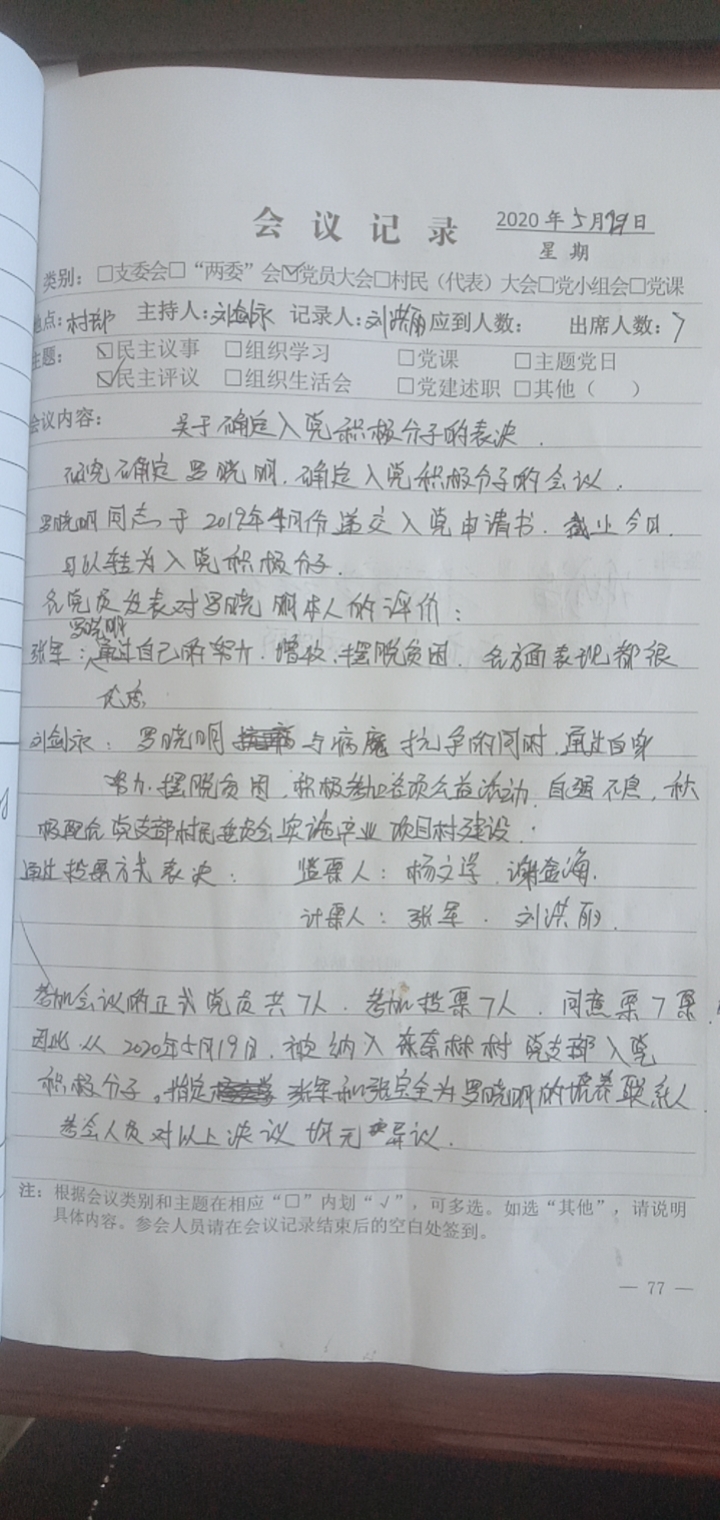 会议记录
2020年5月19日
星期
类别：□支委会□“两委”会☑党员大会□村民（代表）大会□党小组会□党课
地点：村部 主持人：刘剑永 记录人：刘洪丽 应到人数： 出席人数：7
主题： ☑民主议事 □组织学习 □党课 □主题党日
☑民主评议 □组织生活会 □党建述职 □其他（ ）
会议内容： 关于确定入党积极分子的表决．
研究确定罗晓明．确定入党积极分子的会议．
罗晓明同志于2019年4月份递交入党申请书．截止今日．
可以转为入党积极分子．
各党员发表对罗晓明本人的评价：
张军：罗晓明通过自己的努力．增收、摆脱贫困．各方面表现都很
优秀
刘剑永：罗晓明与病魔抗争的同时．通过自身
努力．摆脱贫困．积极参加各项公益活动．自强不息．积
极配合党支部村民委员会实施产业项目村建设．
通过投票方式表决： 监票人：杨文学．谢金海．
计票人：张军．刘洪丽．
参加会议的正式党员共7人．参加投票7人．同意票7票，
因此从2020年5月19日．被纳入 林村党支部入党
积极分子。指定张军和张宝全为罗晓明的培养联系人．
参会人员对以上决议均无异议．
注：根据会议类别和主题在相应“□”内划“√”，可多选。如选“其他”，请说明
具体内容。参会人员请在会议记录结束后的空白处签到。
— 77 —